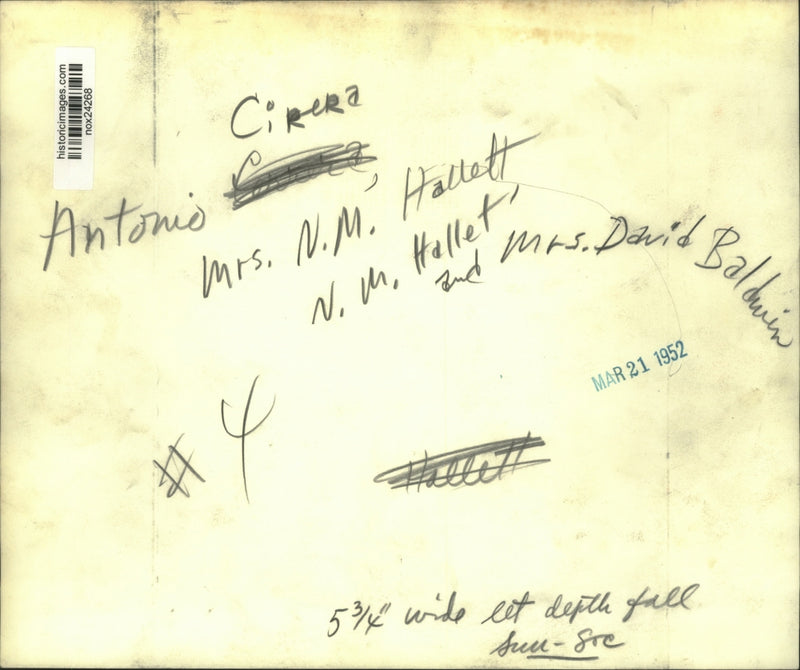 historicimages.com
nox24268
Cirera
Antonio
Mrs. N.M. Hallett
N. M. Hallet,
and Mrs. David Baldwin
MAR 21 1952
# 4
Hallett
5 3/4" wide let depth fall
Sun - Soc